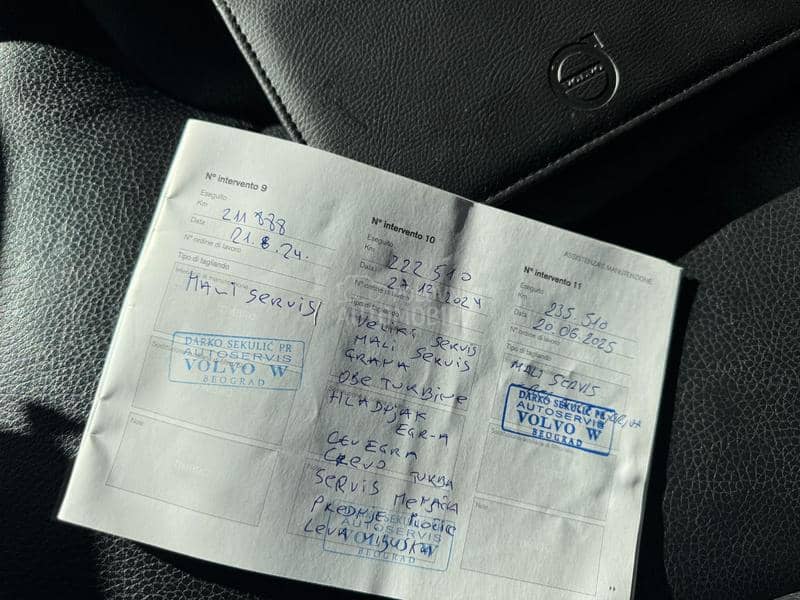 VOLVO
N° intervento 9
Eseguito
Km 211 888
Data 01.8.24.
N° ordine di lavoro
Tipo di tagliando
MALI SERVIS
DARKO SEKULIĆ PR
AUTOSERVIS
VOLVO W
BEOGRAD
Note
N° intervento 10
Eseguito
Km 222 510
Data 27.12.2024
N° ordine di lavoro
Tipo di tagliando
VELIKI SERVIS
MALI SERVIS
GRANA
OBE TURBINE
HLADNJAK
EGR-A
CEV EGRA
CREVO TURBA
SERVIS MENJAČA
PREDNJE
LEVA
SEKULIĆ PR
AUTOSERVIS
VOLVO W
BEOGRAD
ASSISTENZA E MANUTENZIONE
N° intervento 11
Eseguito
Km 235 510
Data 20.06.2025
N° ordine di lavoro
Tipo di tagliando
MALI SERVIS
DARKO SEKULIĆ PR
AUTOSERVIS
VOLVO W
BEOGRAD
Note